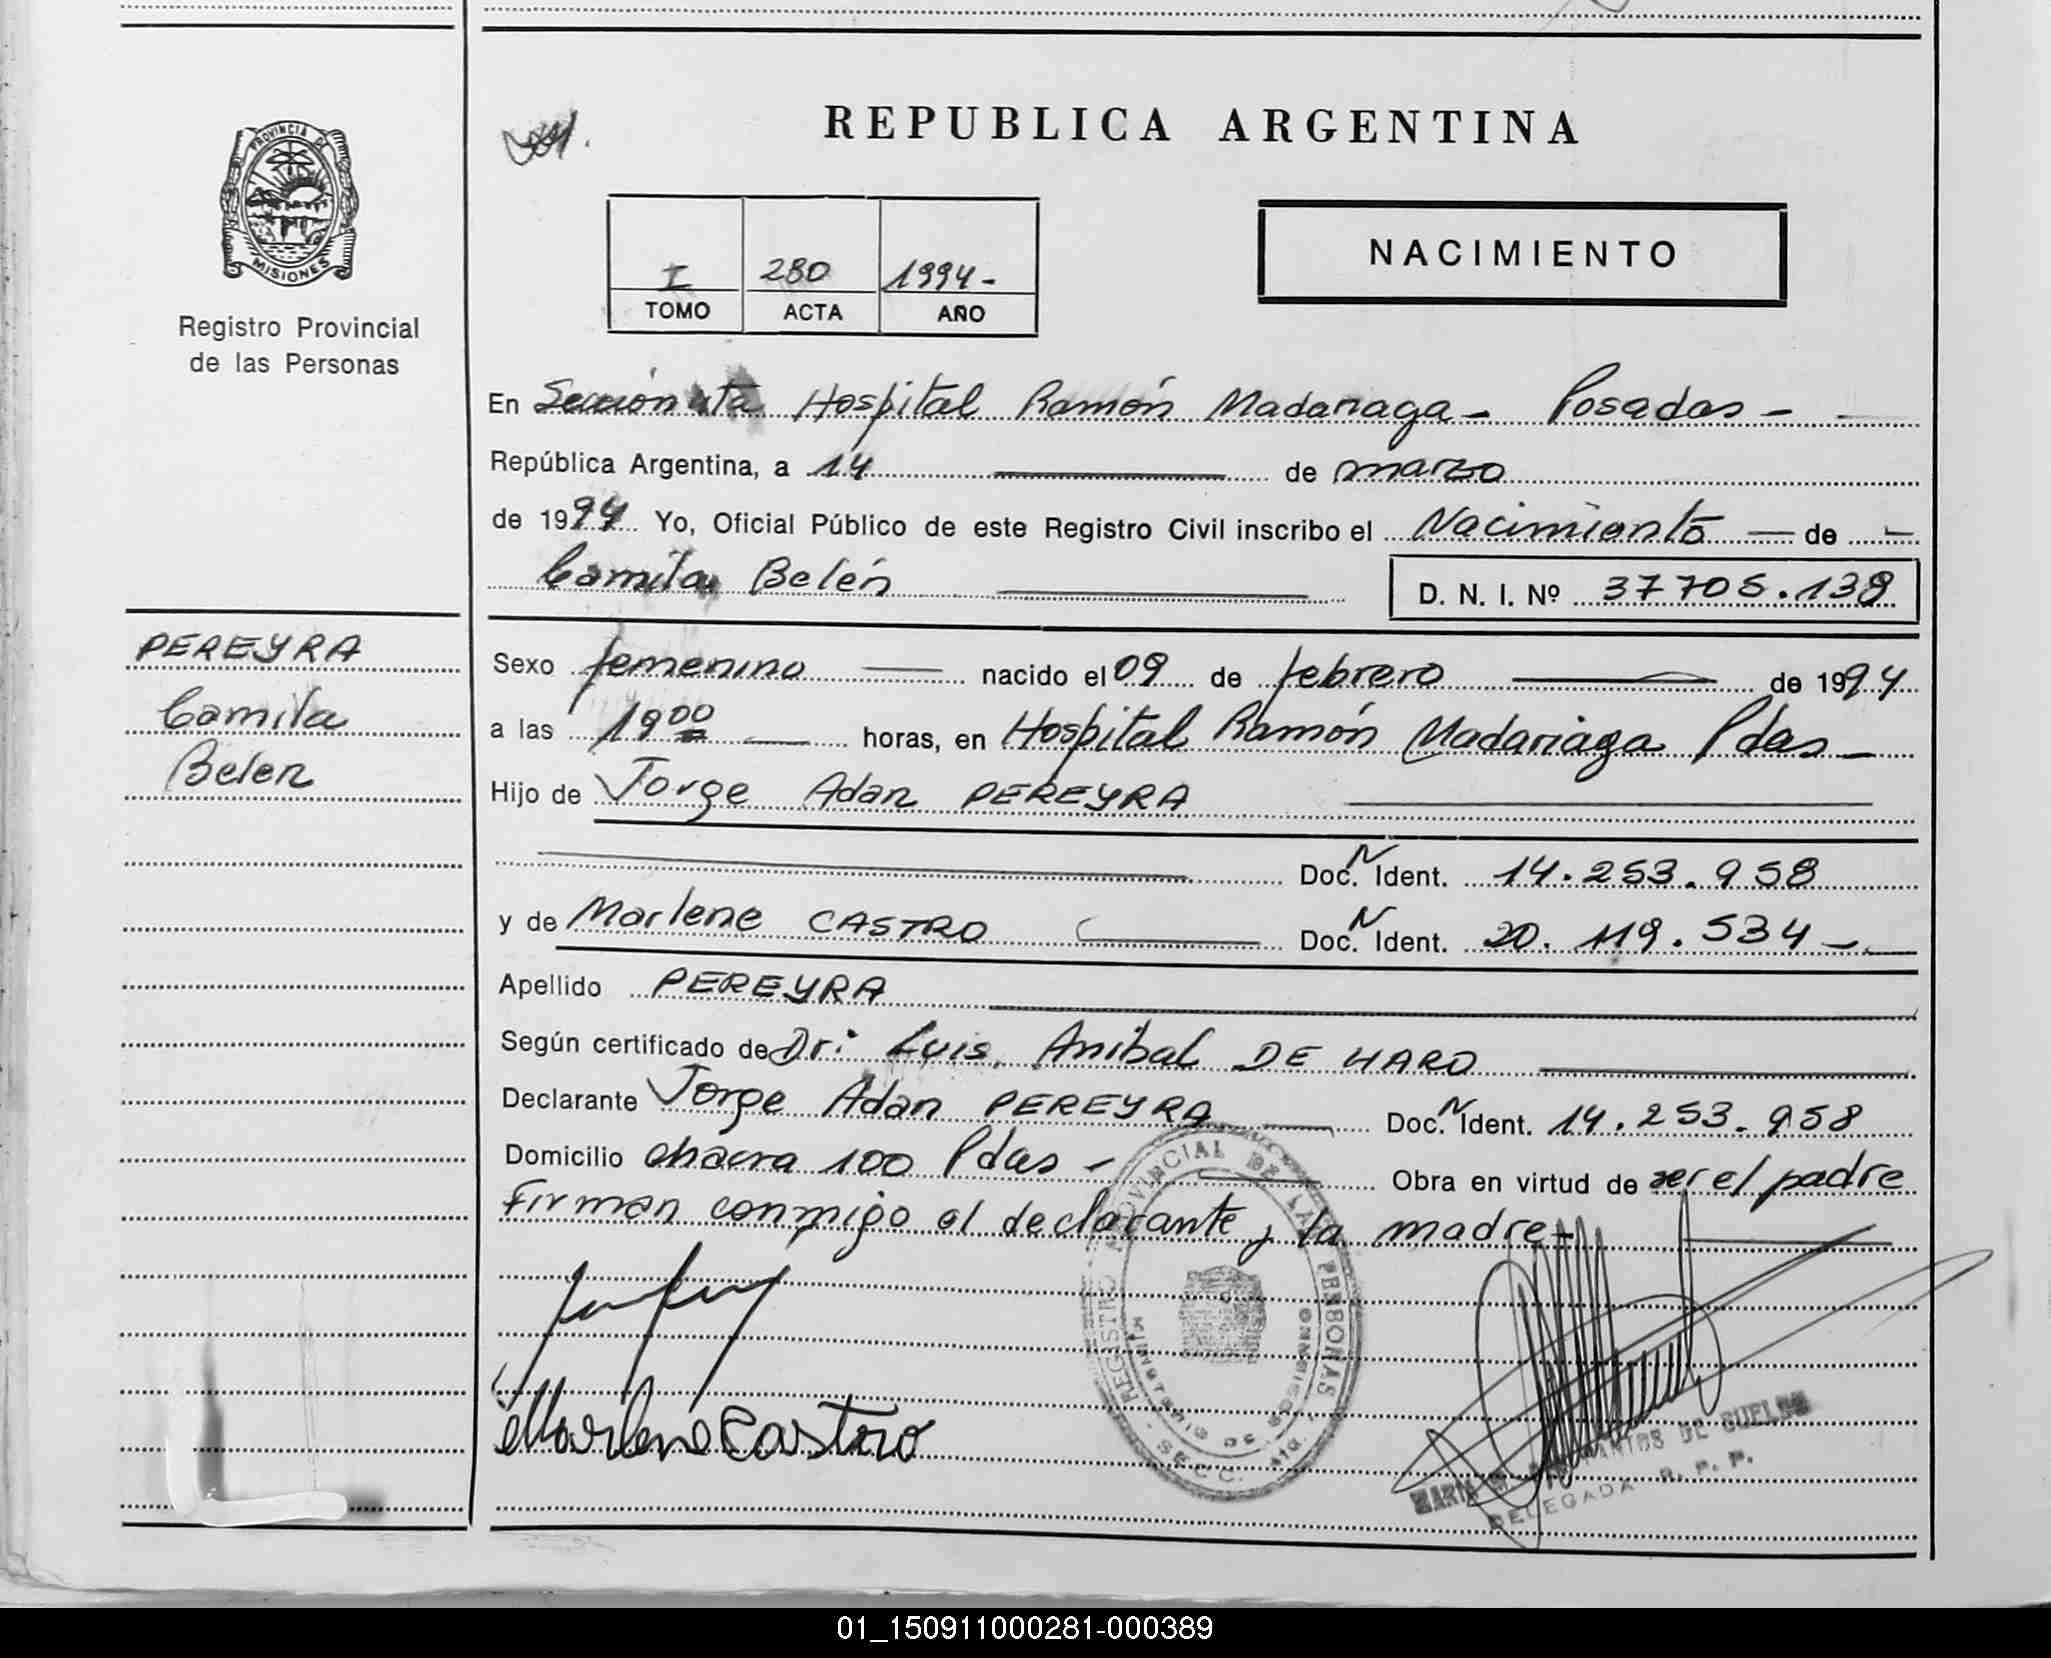 REPUBLICA ARGENTINA
PROVINCIA DE
MISIONES
Registro Provincial
de las Personas
I 280 1994-
TOMO ACTA AÑO
NACIMIENTO
En Sección 4ta Hospital Ramón Madariaga - Posadas -
República Argentina, a 14 de marzo
de 1994 Yo, Oficial Público de este Registro Civil inscribo el Nacimiento de
Camila Belén D. N. I. Nº 37705.139
PEREYRA
Camila
Belen
Sexo femenino nacido el 09 de febrero de 1994
a las 19 00 horas, en Hospital Ramón Madariaga Pdas -
Hijo de Jorge Adan PEREYRA
Doc. N Ident. 14.253.958
y de Marlene CASTRO Doc. N Ident. 20.119.534 -
Apellido PEREYRA
Según certificado de Dr: Luis Anibal DE HARO
Declarante Jorge Adan PEREYRA Doc. N Ident. 14.253.958
Domicilio chacra 100 Pdas - Obra en virtud de ser el padre
Firman conmigo el declarante y la madre -
REGISTRO PROVINCIAL DE LAS PERSONAS
MINISTERIO DE GOBIERNO
SECC.
Marlene Castro
MARIA DE SUELDO
DELEGADA R. P. P.
01_150911000281-000389